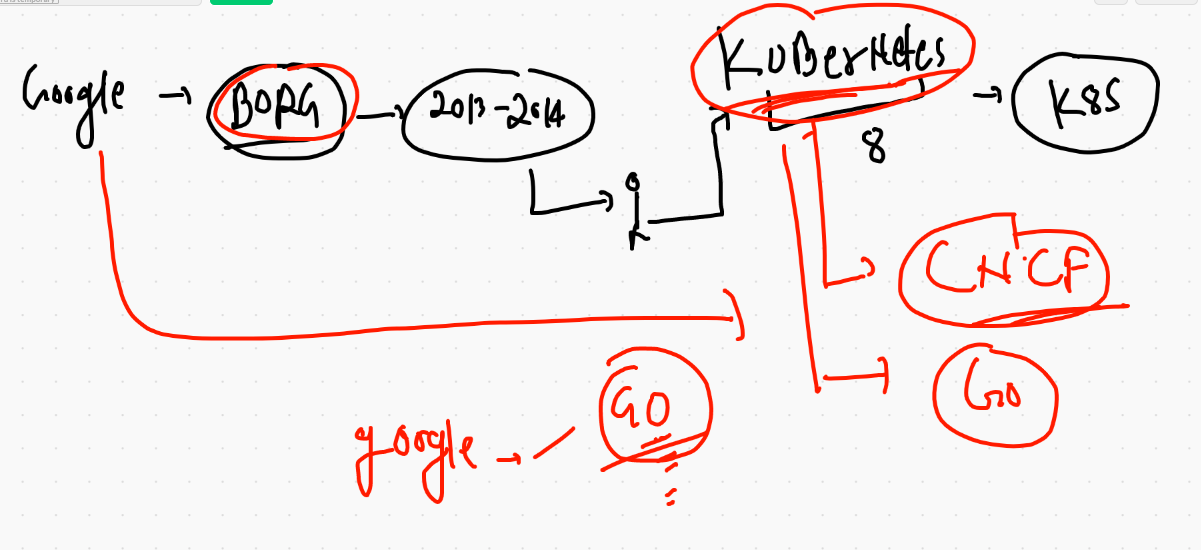 Google → BORG → 2013-2014
KUBerNetes → K8S
8
CNCF
GO
google → GO